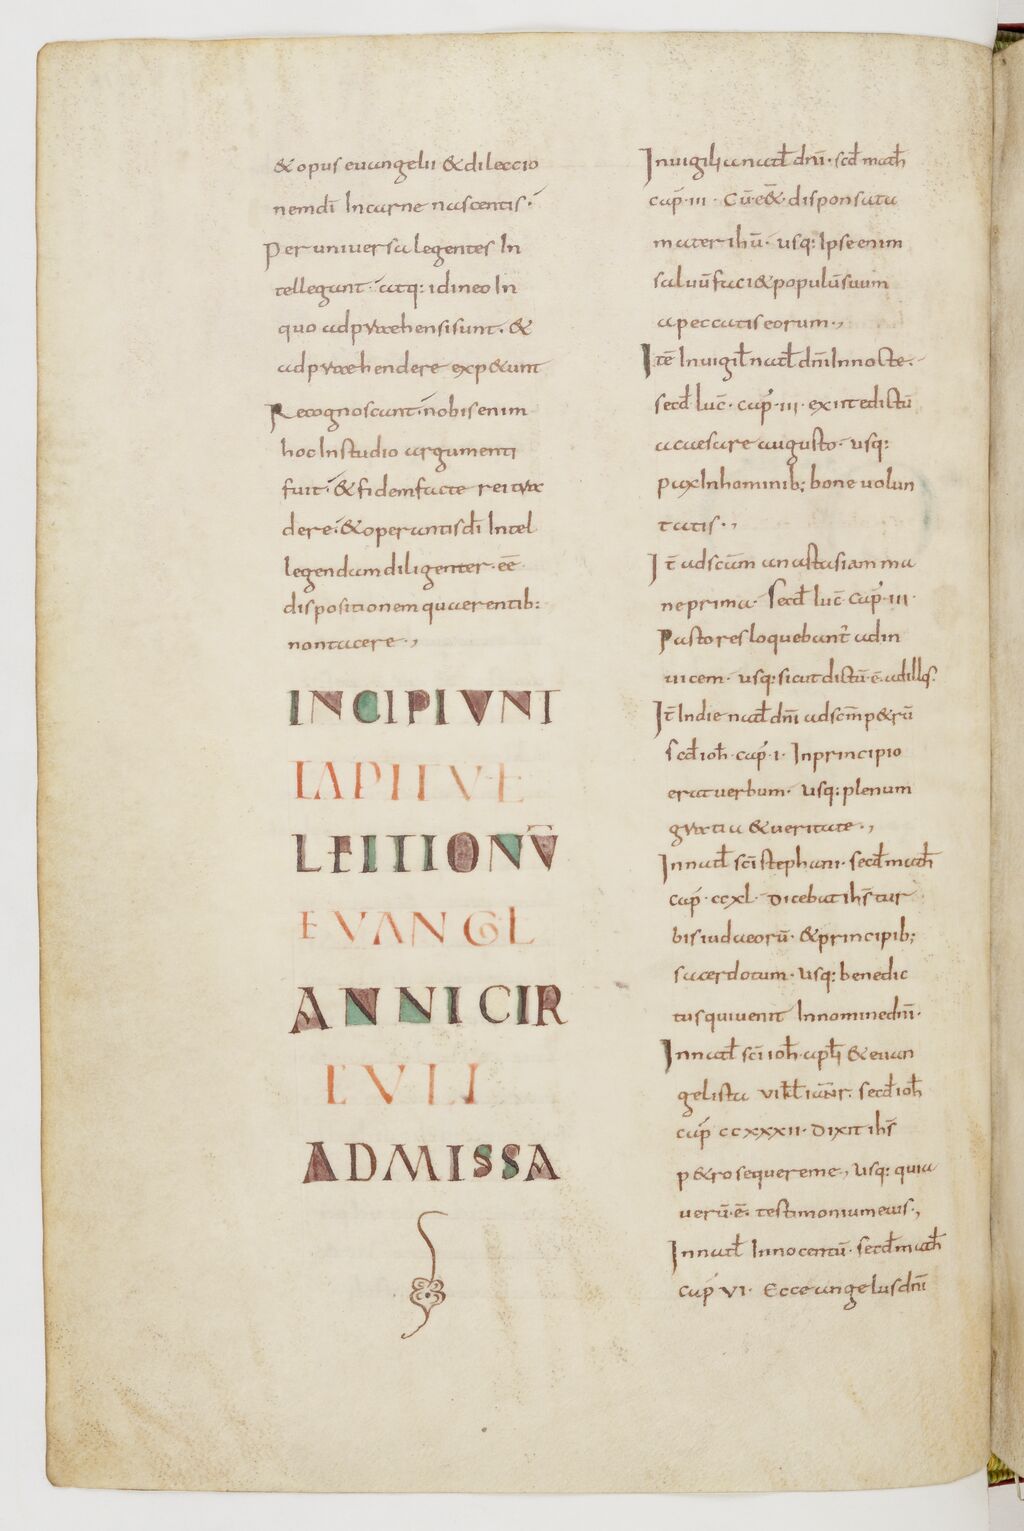 & opus euangelii & dileccio
nemdi̅ In carne nascentis·
Per uniuersa legentes In
tellegant· atq: id in eo In
quo adpraehensi sunt· &
adpraehendere expetunt
Recognoscant· nobis enim
hoc In studio argumenti
fuit· & fidem factae rei tra
dere· & operantis di̅ Intel
legendam diligenter· ee̅
dispositionem quaerentib:
non tacere·,
INCIPIUNT
CAPITULE
LECTIONU̅
EUANGL
ANNI CIR
CULI
AD MISSA
In uigilia natł dn̅i· scd̅ math̅
cap̅ iii· Cu̅ e&̅ disponsata
mater ihu̅· usq: Ipse enim
saluu̅ faci& populu̅ suum
a peccatis eorum·,
Ite̅ In uigil̅ natł dn̅i In nocte·
secd̅ luc̅· cap̅· iii· exiit edictu̅
a caesare augusto· usq:
pax In hominib; bone uolun
tatis·,
It̅ ad sc̅am anastasiam ma
ne prima· Secd̅ luc̅ cap̅· iii·
Pastores loquebant̅ ad in
uicem· usq: sicut dictu̅ e̅· ad illos·
It̅ In die natł dn̅i ad scm̅ p&ru̅
scd̅ ioh̅· cap̅· i· In principio
erat uerbum· usq: plenum
gratia & ueritate·,
In natł sc̅i stephani· secd̅ math̅
cap̅· ccxl· dicebat ihs̅ tur
bis iudaeoru̅· & principib;
sacerdotum· usq: benedic
tus qui uenit In nomine dn̅i·
In natł sc̅i ioh̅· apłi & euan
gelista vi kł ian̅r· secd̅ ioh̅
cap̅ ccxxxii· dixit ihs̅
p&ro sequere me, usq: quia
ueru̅· e̅· testimonium eius·,
In natł Innocentu̅· secd̅ math̅
cap̅ vi· Ecce angelus dn̅i